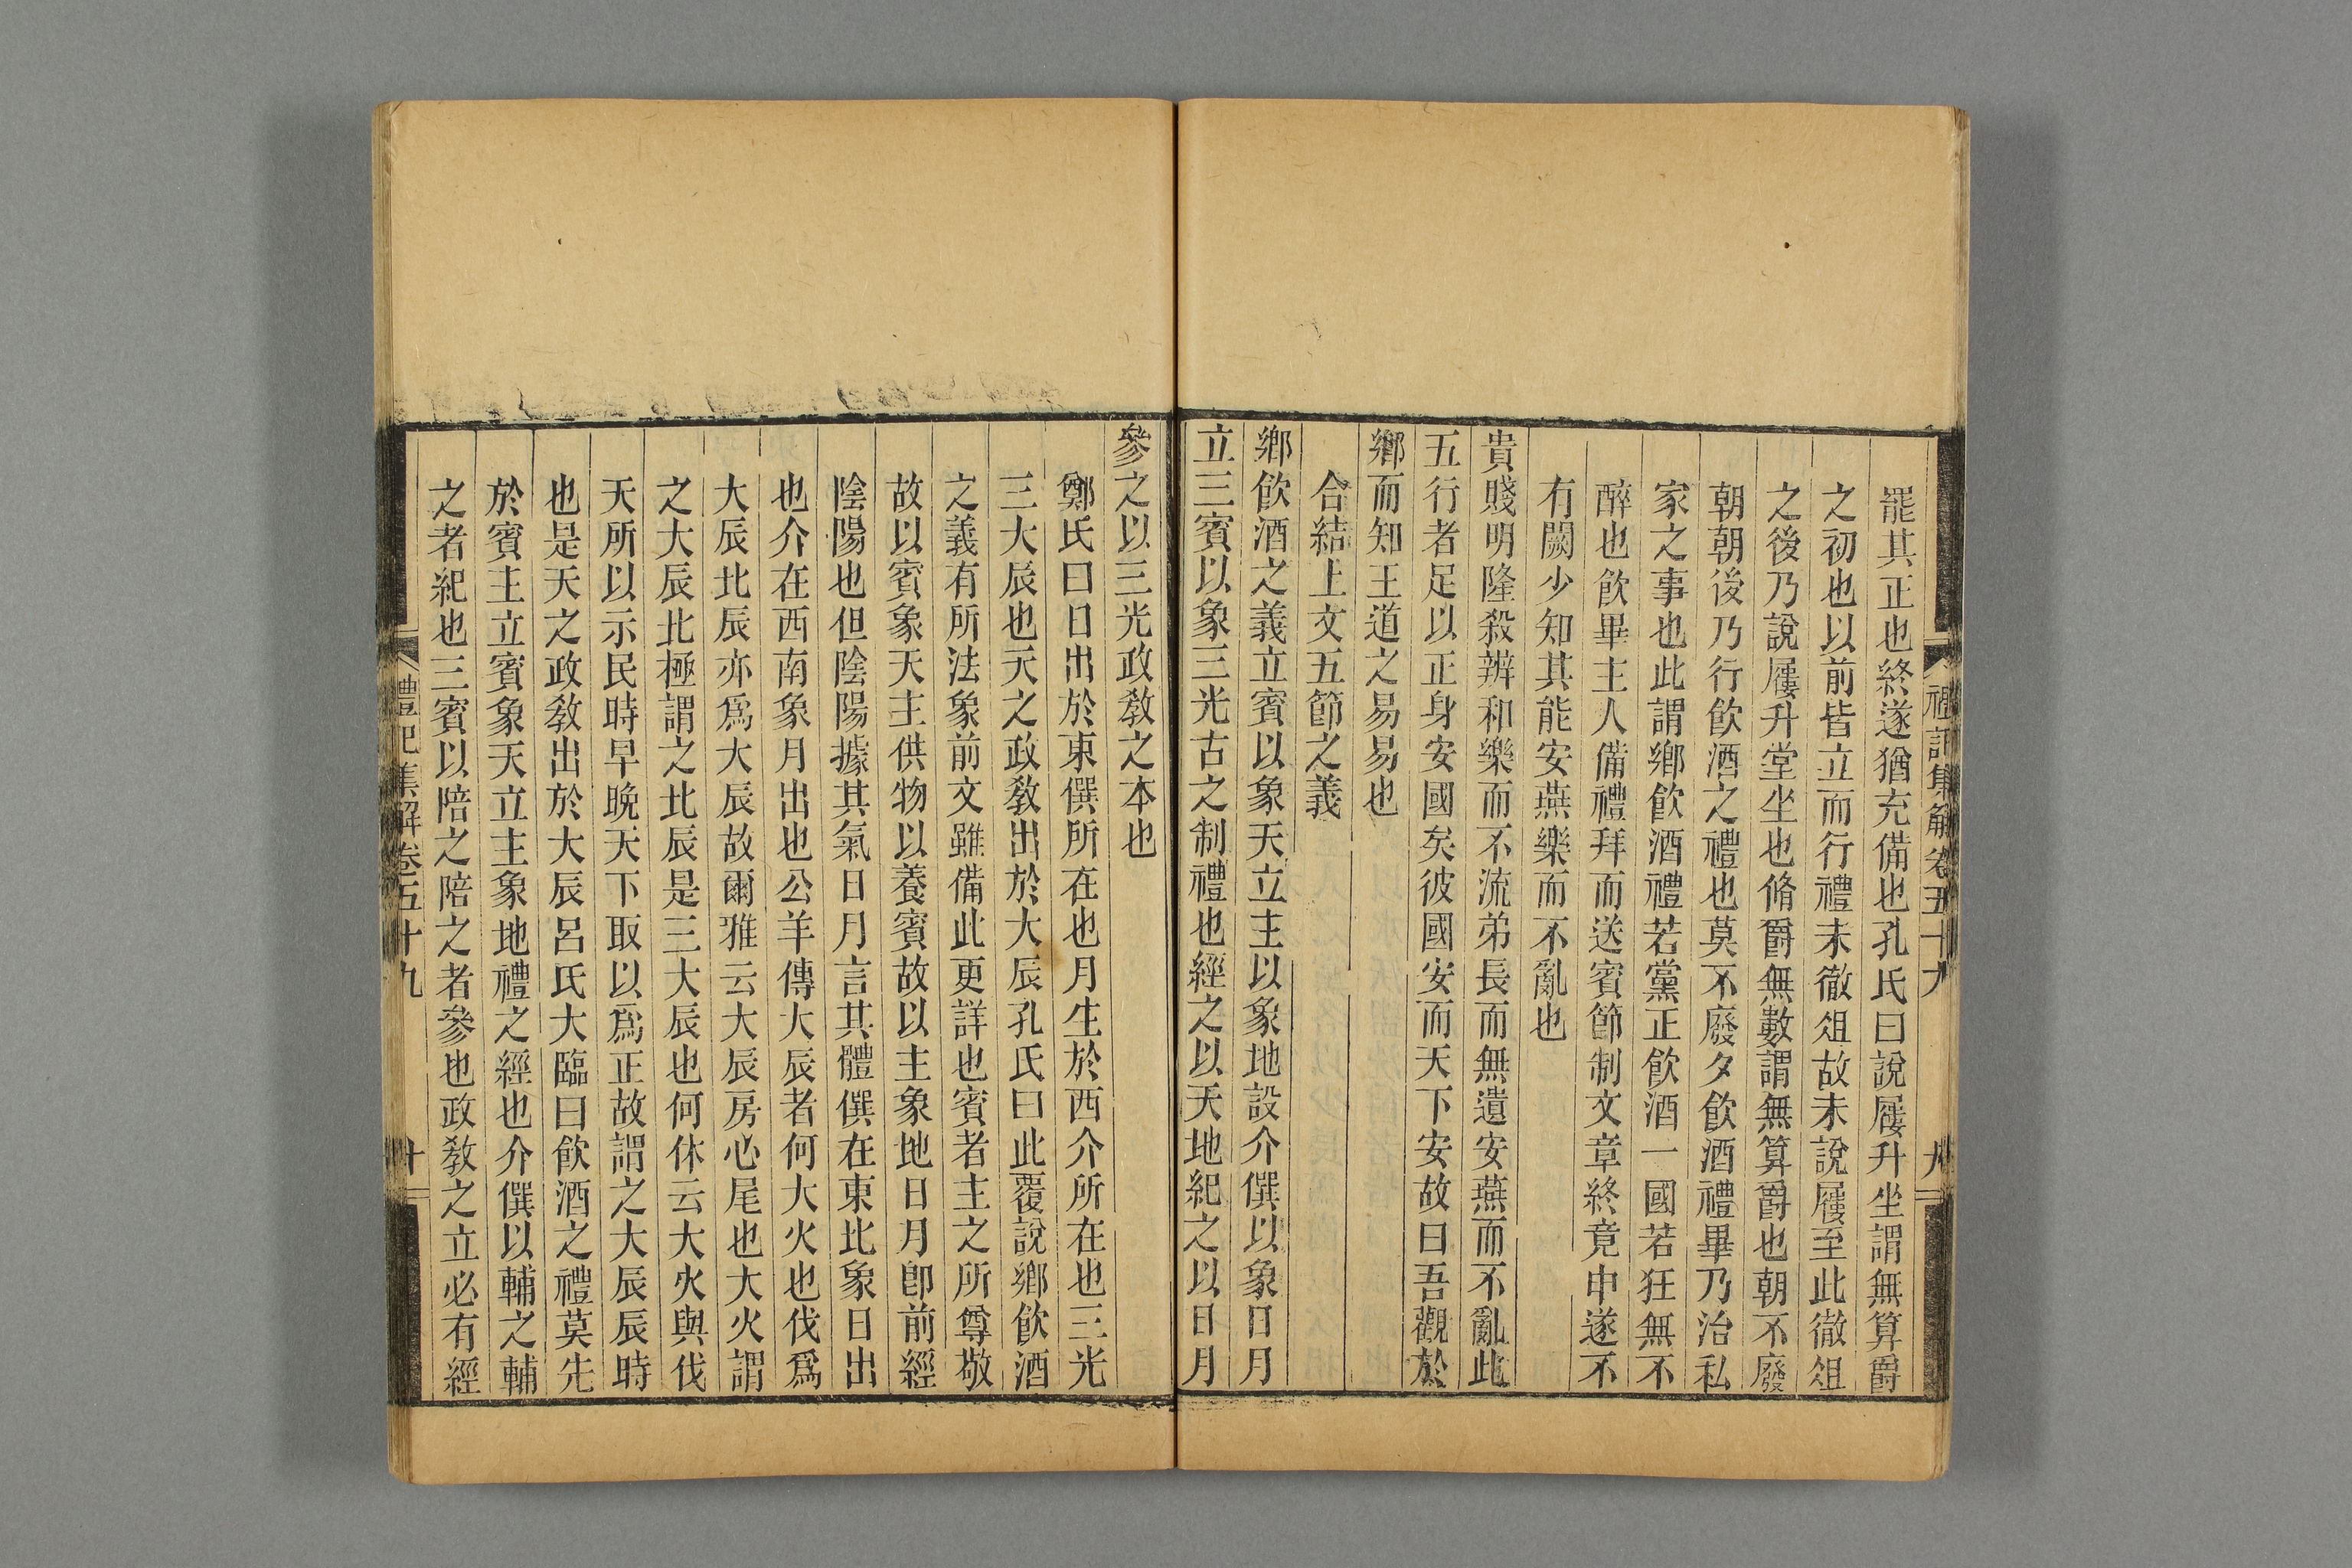 禮記集解卷五十九
九
罷其正也終遂猶充備也孔氏曰說屨升坐謂無算爵
之初也以前皆立而行禮未徹俎故未說屨至此徹俎
之後乃說屨升堂坐也脩爵無數謂無算爵也朝不廢
朝朝後乃行飲酒之禮也莫不廢夕飲酒禮畢乃治私
家之事也此謂鄉飲酒禮若黨正飲酒一國若狂無不
醉也飲畢主人備禮拜而送賓節制文章終竟申遂不
有闕少知其能安燕樂而不亂也
貴賤明隆殺辨和樂而不流弟長而無遺安燕而不亂此
五行者足以正身安國矣彼國安而天下安故曰吾觀於
鄉而知王道之易易也
合結上文五節之義
鄉飲酒之義立賓以象天立主以象地設介僎以象日月
立三賓以象三光古之制禮也經之以天地紀之以日月
參之以三光政教之本也
鄭氏曰日出於東僎所在也月生於西介所在也三光
三大辰也天之政教出於大辰孔氏曰此覆說鄉飲酒
之義有所法象前文雖備此更詳也賓者主之所尊敬
故以賓象天主供物以養賓故以主象地日月卽前經
陰陽也但陰陽據其氣日月言其體僎在東北象日出
也介在西南象月出也公羊傳大辰者何大火也伐爲
大辰北辰亦爲大辰故爾雅云大辰房心尾也大火謂
之大辰北極謂之北辰是三大辰也何休云大火與伐
天所以示民時早晚天下取以爲正故謂之大辰辰時
也是天之政教出於大辰呂氏大臨曰飲酒之禮莫先
於賓主立賓象天立主象地禮之經也介僎以輔之輔
之者紀也三賓以陪之陪之者參也政教之立必有經
禮記集解卷五十九
十